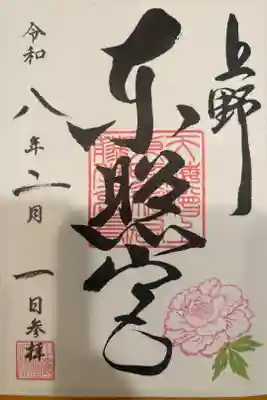 上野
東照宮
令和八年二月一日参拝